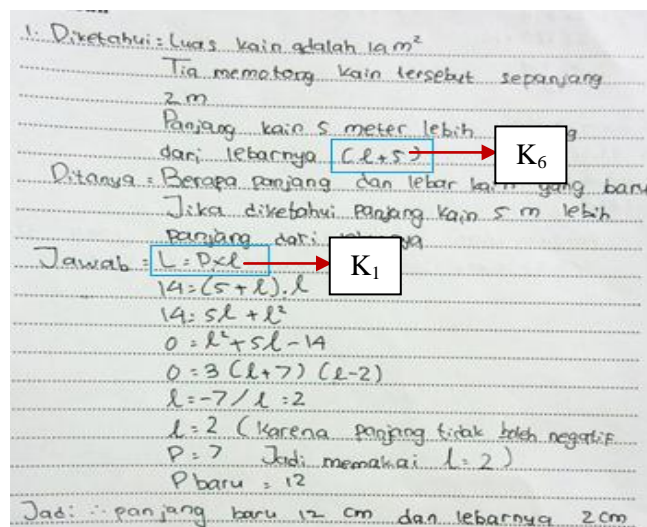 1. Diketahui = Luas kain adalah 14 m²
Tia memotong kain tersebut sepanjang
2 m
Panjang kain 5 meter lebih
dari lebarnya (l+5) K₆
Ditanya = Berapa panjang dan lebar kain yang baru
Jika diketahui panjang kain 5 m lebih
panjang dari
Jawab = L = P×l K₁
14 = (5 + l).l
14 = 5l + l²
0 = l² + 5l - 14
0 = 3 (l+7) (l-2)
l = -7 / l = 2
l = 2 (karena panjang tidak boleh negatif
P = 7 Jadi memakai l = 2)
P baru = 12
Jadi ∴ panjang baru 12 cm dan lebarnya 2 cm